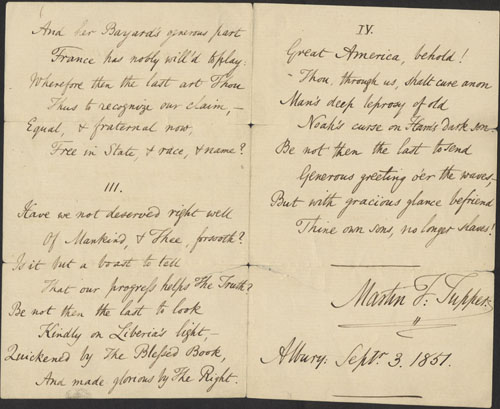 And her Bayard's generous part
France has nobly will'd to play:
Wherefore then the last art Thou
Thus to recognize our claim,—
Equal, & fraternal now,
Free in State, & race, & name?
III.
Have we not deserved right well
Of Mankind, & Thee, forsooth?
Is it but a boast to tell
That our progress helps The Truth?
Be not then the last to look
Kindly on Liberia's light,—
Quickened by The Blessed Book,
And made glorious by The Right.
IV.
Great America, behold!
Thou, through us, shalt cure anon
Man's deep leprosy of old
Noah's curse on Ham's dark son.
Be not then the last to send
Generous greeting o'er the waves,
But with gracious glance befriend
Thine own sons, no longer slaves!
Martin F. Tupper.
Albury: Septr. 3. 1851.